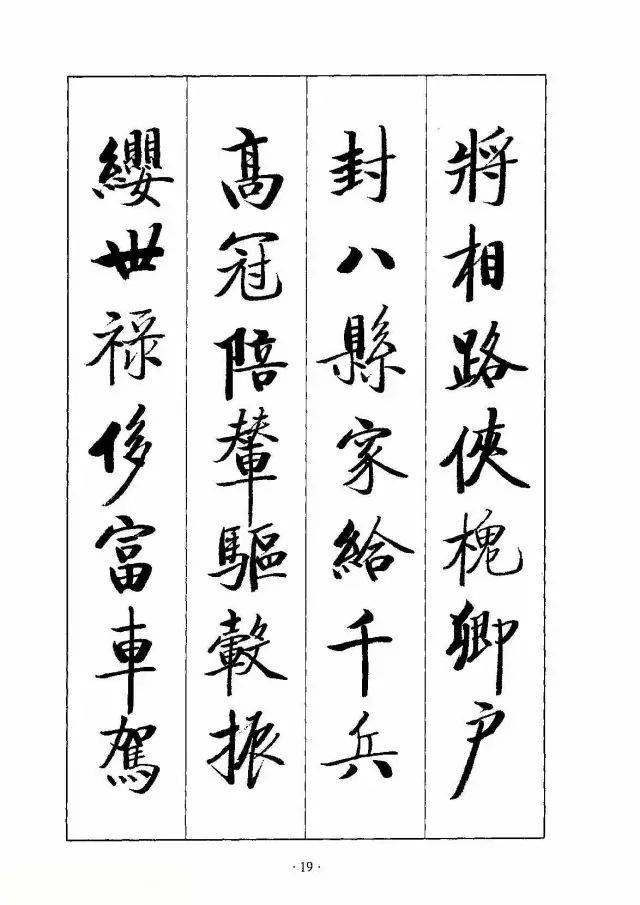 將相路俠槐卿户
封八縣家給千兵
高冠陪輦驅轂振
纓世祿侈富車駕
·19·